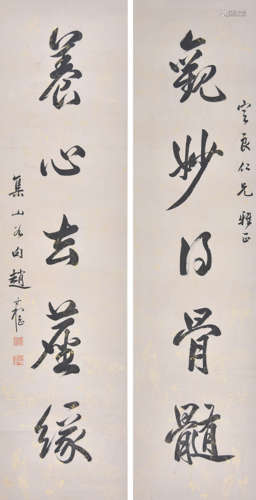 良仁兄 雅正
觀妙得骨髓
養心去塵緣
集山谷句 趙